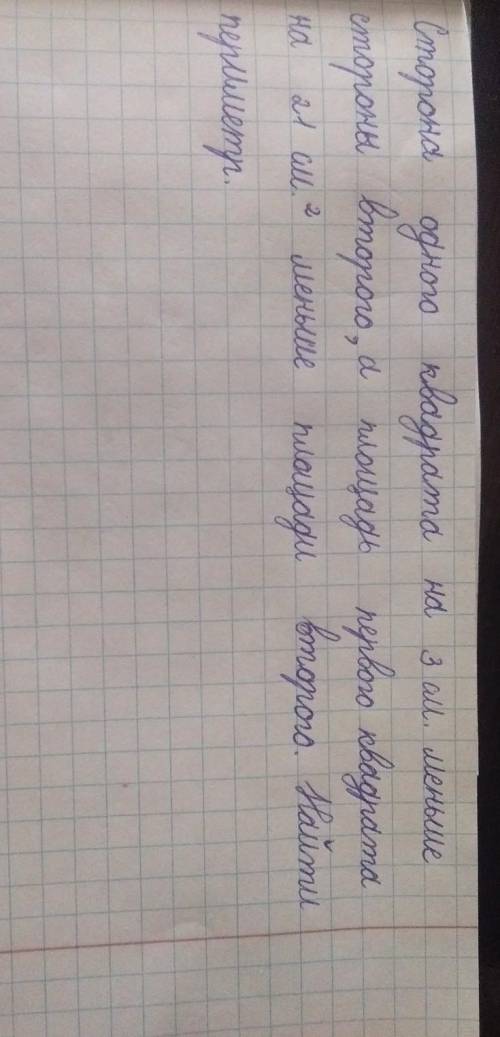 Сторона одного квадрата на 3 см. меньше
стороны второго, а площадь первого квадрата
на 21 см.² меньше площади второго. Найти
периметр.